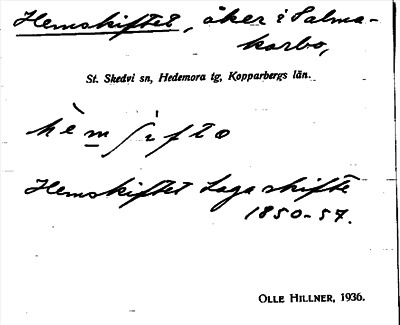 Hemskiftet, åker i Salma-
karbo,
St. Skedvi sn, Hedemora tg, Kopparbergs län.
Hemskiftet Laga skifte
1850-57.
OLLE HILLNER, 1936.